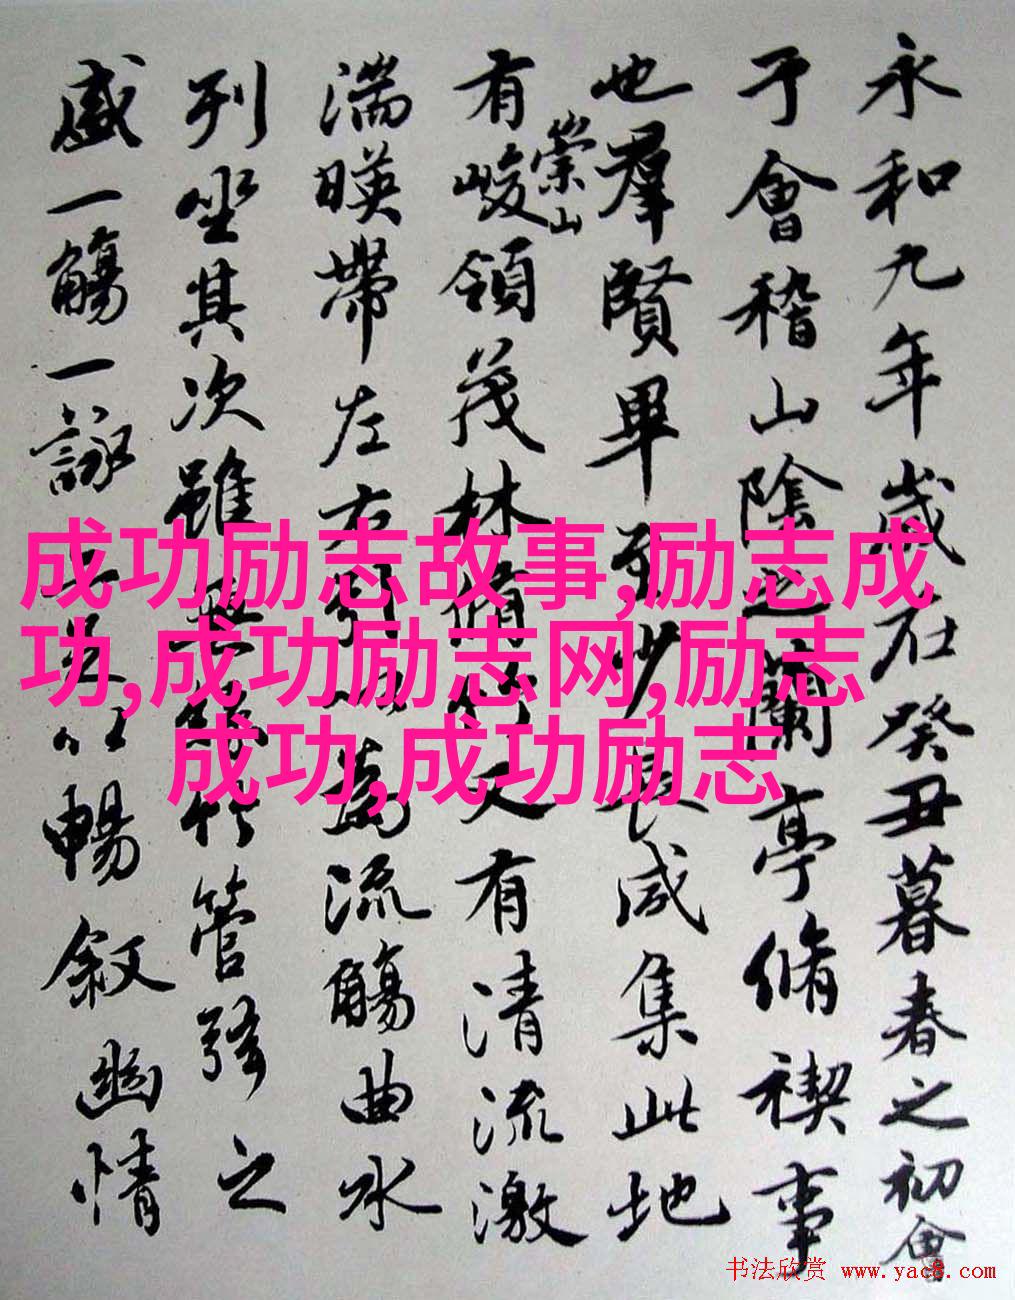 永和九年歲在癸丑暮春之初會
于會稽山陰之蘭亭脩禊事
也羣賢畢至少長咸集此地
有崇山峻領茂林脩竹又有清流激
湍暎帶左右引以為流觴曲水
列坐其次雖無絲竹管弦之
盛一觴一詠亦足以暢敘幽情
成功励志故事,励志成
功,成功励志网,励志
成功,成功励志
书法欣赏 www.yac8.com